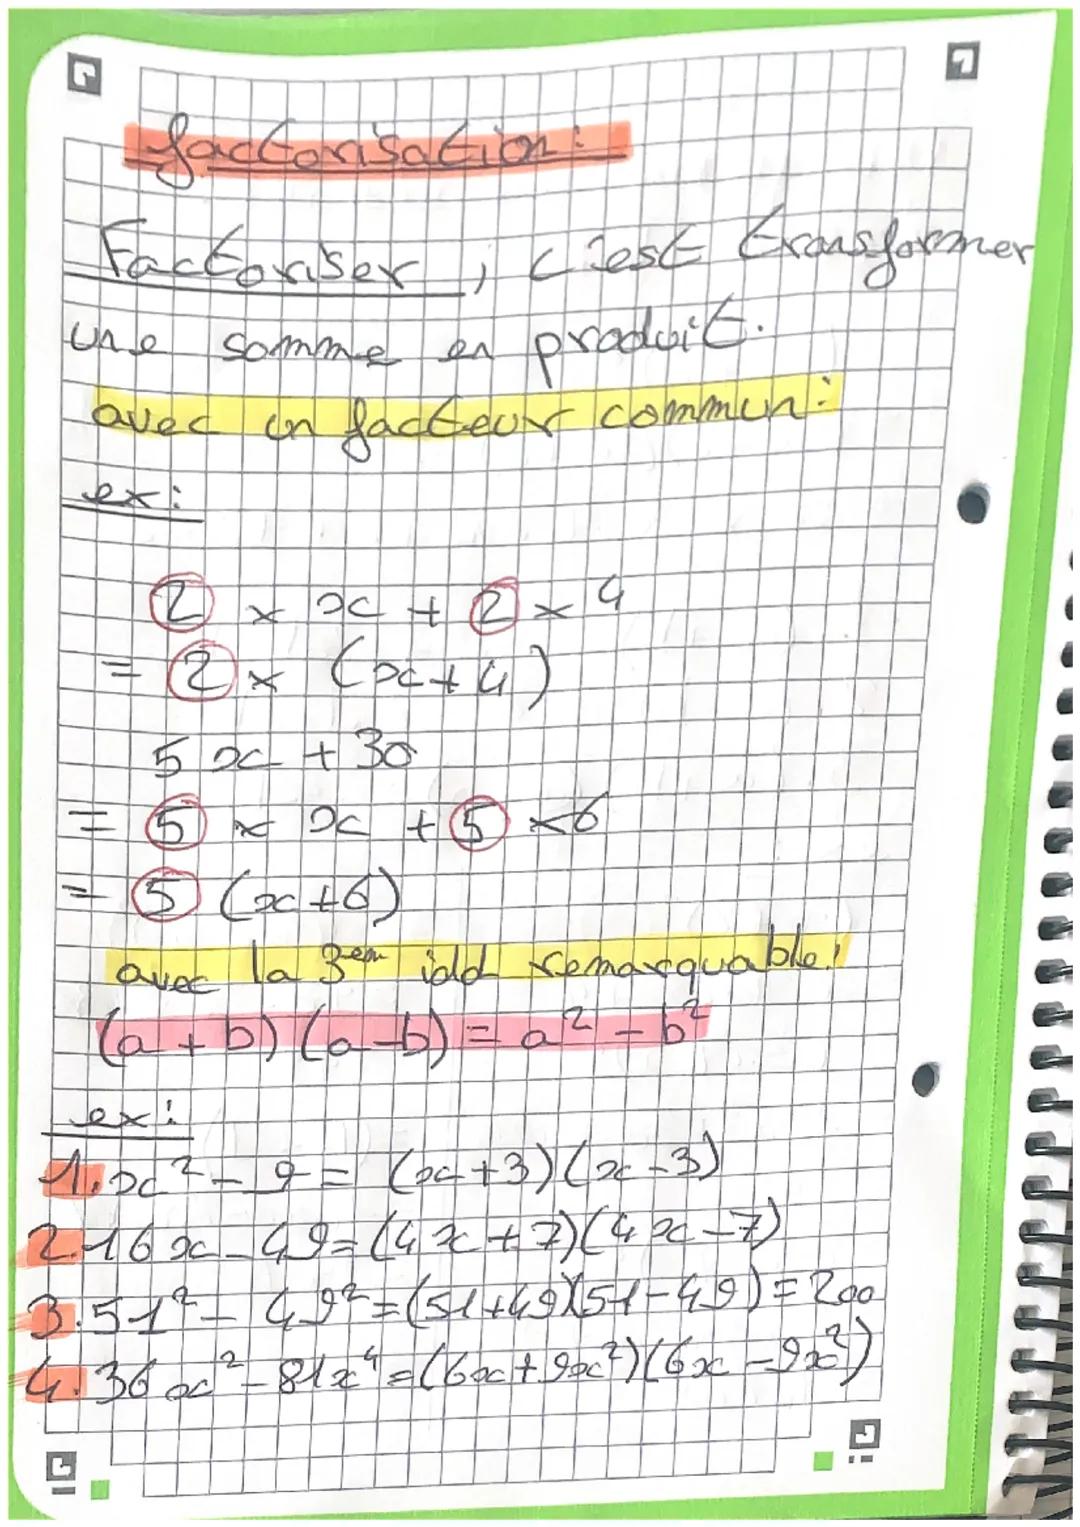 factorisation:
Factoriser, c'est transformer
une somme en produit.
avec un facteur commun:
ex:
2 × x + 2 × 4
= 2 × (x+4)
5x + 30
= 5 × x + 5 × 6
= 5 (x+6)
avec la 3em idd remarquable:
(a+b)(a-b) = a² - b²
ex:
1. x² - 9 = (x+3)(x-3)
2. 16x - 49 = (4x+7)(4x-7)
3. 51² - 49² = (51+49)(51-49) = 200
4. 36x² - 81x⁴ = (6x+9x²)(6x-9x²)